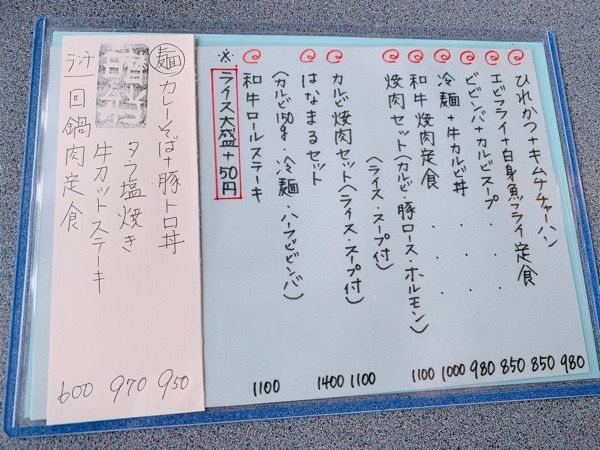 ひれかつ+キムチチャーハン 980
エビフライ+白身魚フライ定食 850
ビビンバ+カルビスープ 850
冷麺+牛カルビ丼 980
和牛焼肉定食 1000
焼肉セット(カルビ・豚ロース・ホルモン) 1100
(ライス・スープ付)
カルビ焼肉セット(ライス・スープ付) 1100
はなまるセット 1400
(カルビ150g 冷麺・ハーフビビンバ)
和牛ロールステーキ 1100
※ライス大盛+50円
麺 カレーそば+豚トロ丼 950
タフ塩焼き
牛カットステーキ 970
回鍋肉定食 600